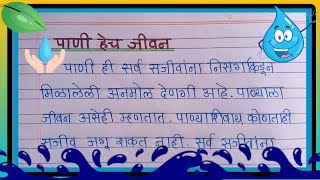 पाणी हेच जीवन
पाणी ही सर्व सजीवांना निसर्गाकडून
मिळालेली अनमोल देणगी आहे. पाण्याला
जीवन असेही म्हणतात. पाण्याशिवाय कोणताही
सजीव जगू शकत नाही. सर्व सजीवांना